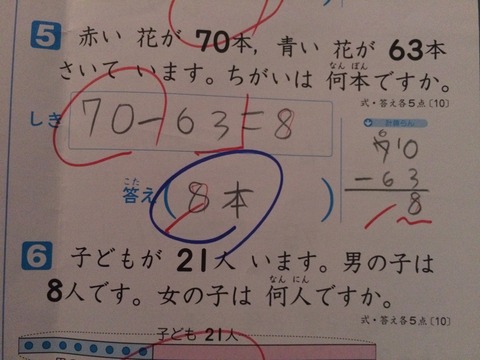 5 赤い 花が 70本，青い 花が 63本
さいて います。ちがいは 何本ですか。
なん ぼん
式・答え各5点〔10〕
しき 70-63=8
計算らん
6
710
-63
8
こた
答え( 8本 )
6 子どもが 21人 います。男の子は
8人です。女の子は 何人ですか。
なん にん
式・答え各5点〔10〕
子ども 21人